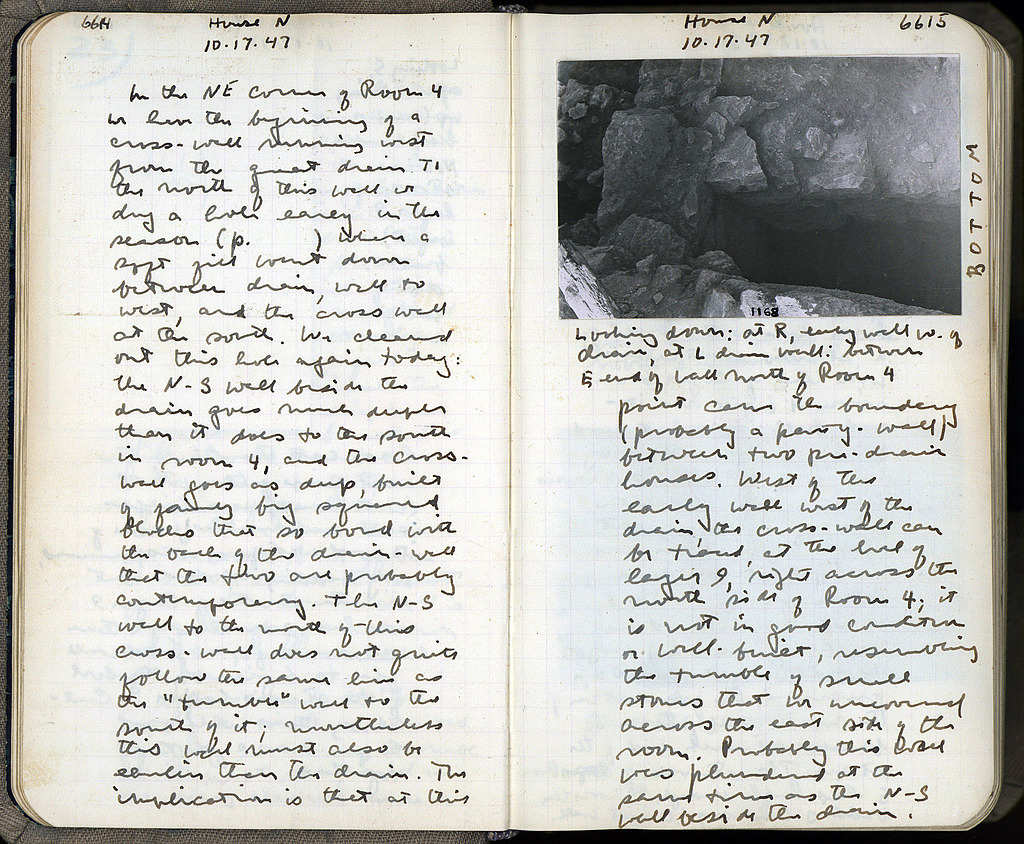 6614
House N
10.17.47
In the NE corner of Room 4
we have the beginning of a
cross-wall running west
from the great drain. To
the north of this wall we
dug a hole early in the
season (p.      ) when a
soft fill went down
between drain, wall to
west, and the cross wall
at the south. We cleaned
out this hole again today:
the N-S wall beside the
drain goes much deeper
than it does to the south
in room 4, and the cross-
wall goes as deep, built
of fairly big squared
blocks that so bond with
the back of the drain-wall
that the two are probably
contemporary. The N-S
wall to the north of this
cross-wall does not quite
follow the same line as
the "tumble" wall to the
south of it; nevertheless
this wall must also be
earlier than the drain. The
implication is that at this
House N
6615
10.17.47
BOTTOM
1168
Looking down: at R, early wall W. of
drain, at L drain wall: between
E end of wall north of Room 4
point came the boundary
(probably a party-wall)
between two pre-drain
houses. West of the
early wall west of the
drain, the cross-wall can
be traced, at the level of
layer 9, right across the
north side of Room 4; it
is not in good condition
or well-built, resembling
the tumble of small
stones that we uncovered
across the east side of the
room. Probably this
was plundered at the
same time as the N-S
wall beside the drain.